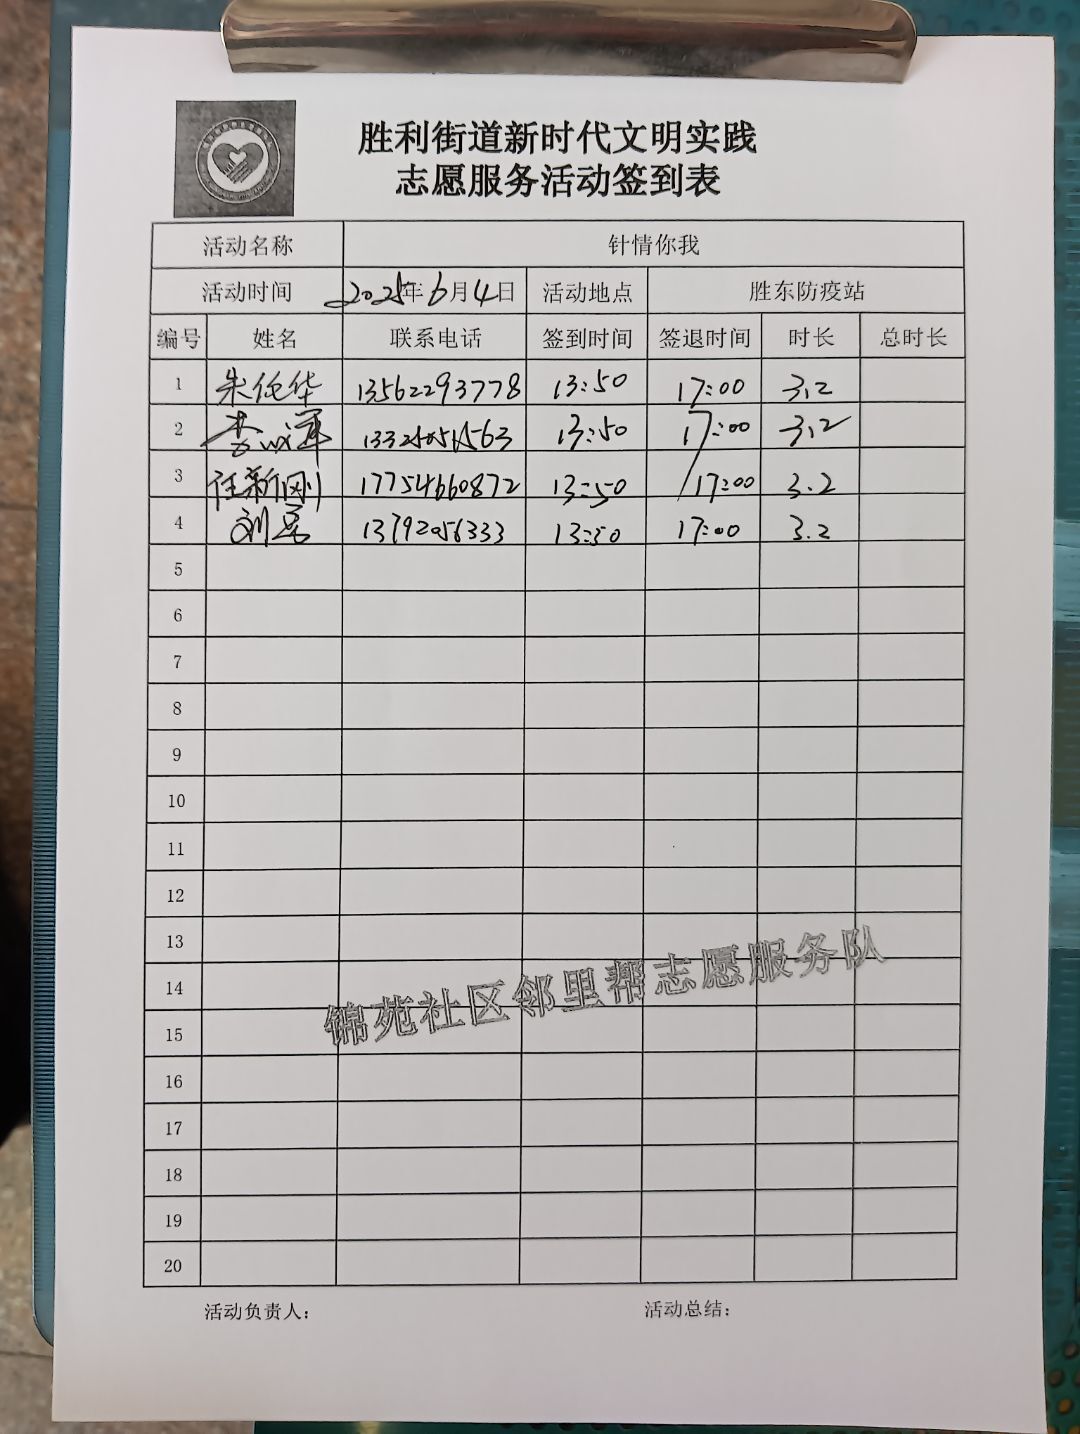 胜利街道新时代文明实践
志愿服务活动签到表
活动名称 针情你我
活动时间 2025年6月4日 活动地点 胜东防疫站
编号 姓名 联系电话 签到时间 签退时间 时长 总时长
1 朱 华 13562293778 13:50 17:00 3.2
2 李 军 13:50 17:00 3.2
3 任新刚 17754660872 13:50 17:00 3.2
4 刘 13792056333 13:50 17:00 3.2
5
6
7
8
9
10
11
12
13
14
锦苑社区邻里帮志愿服务队
15
16
17
18
19
20
活动负责人： 活动总结：